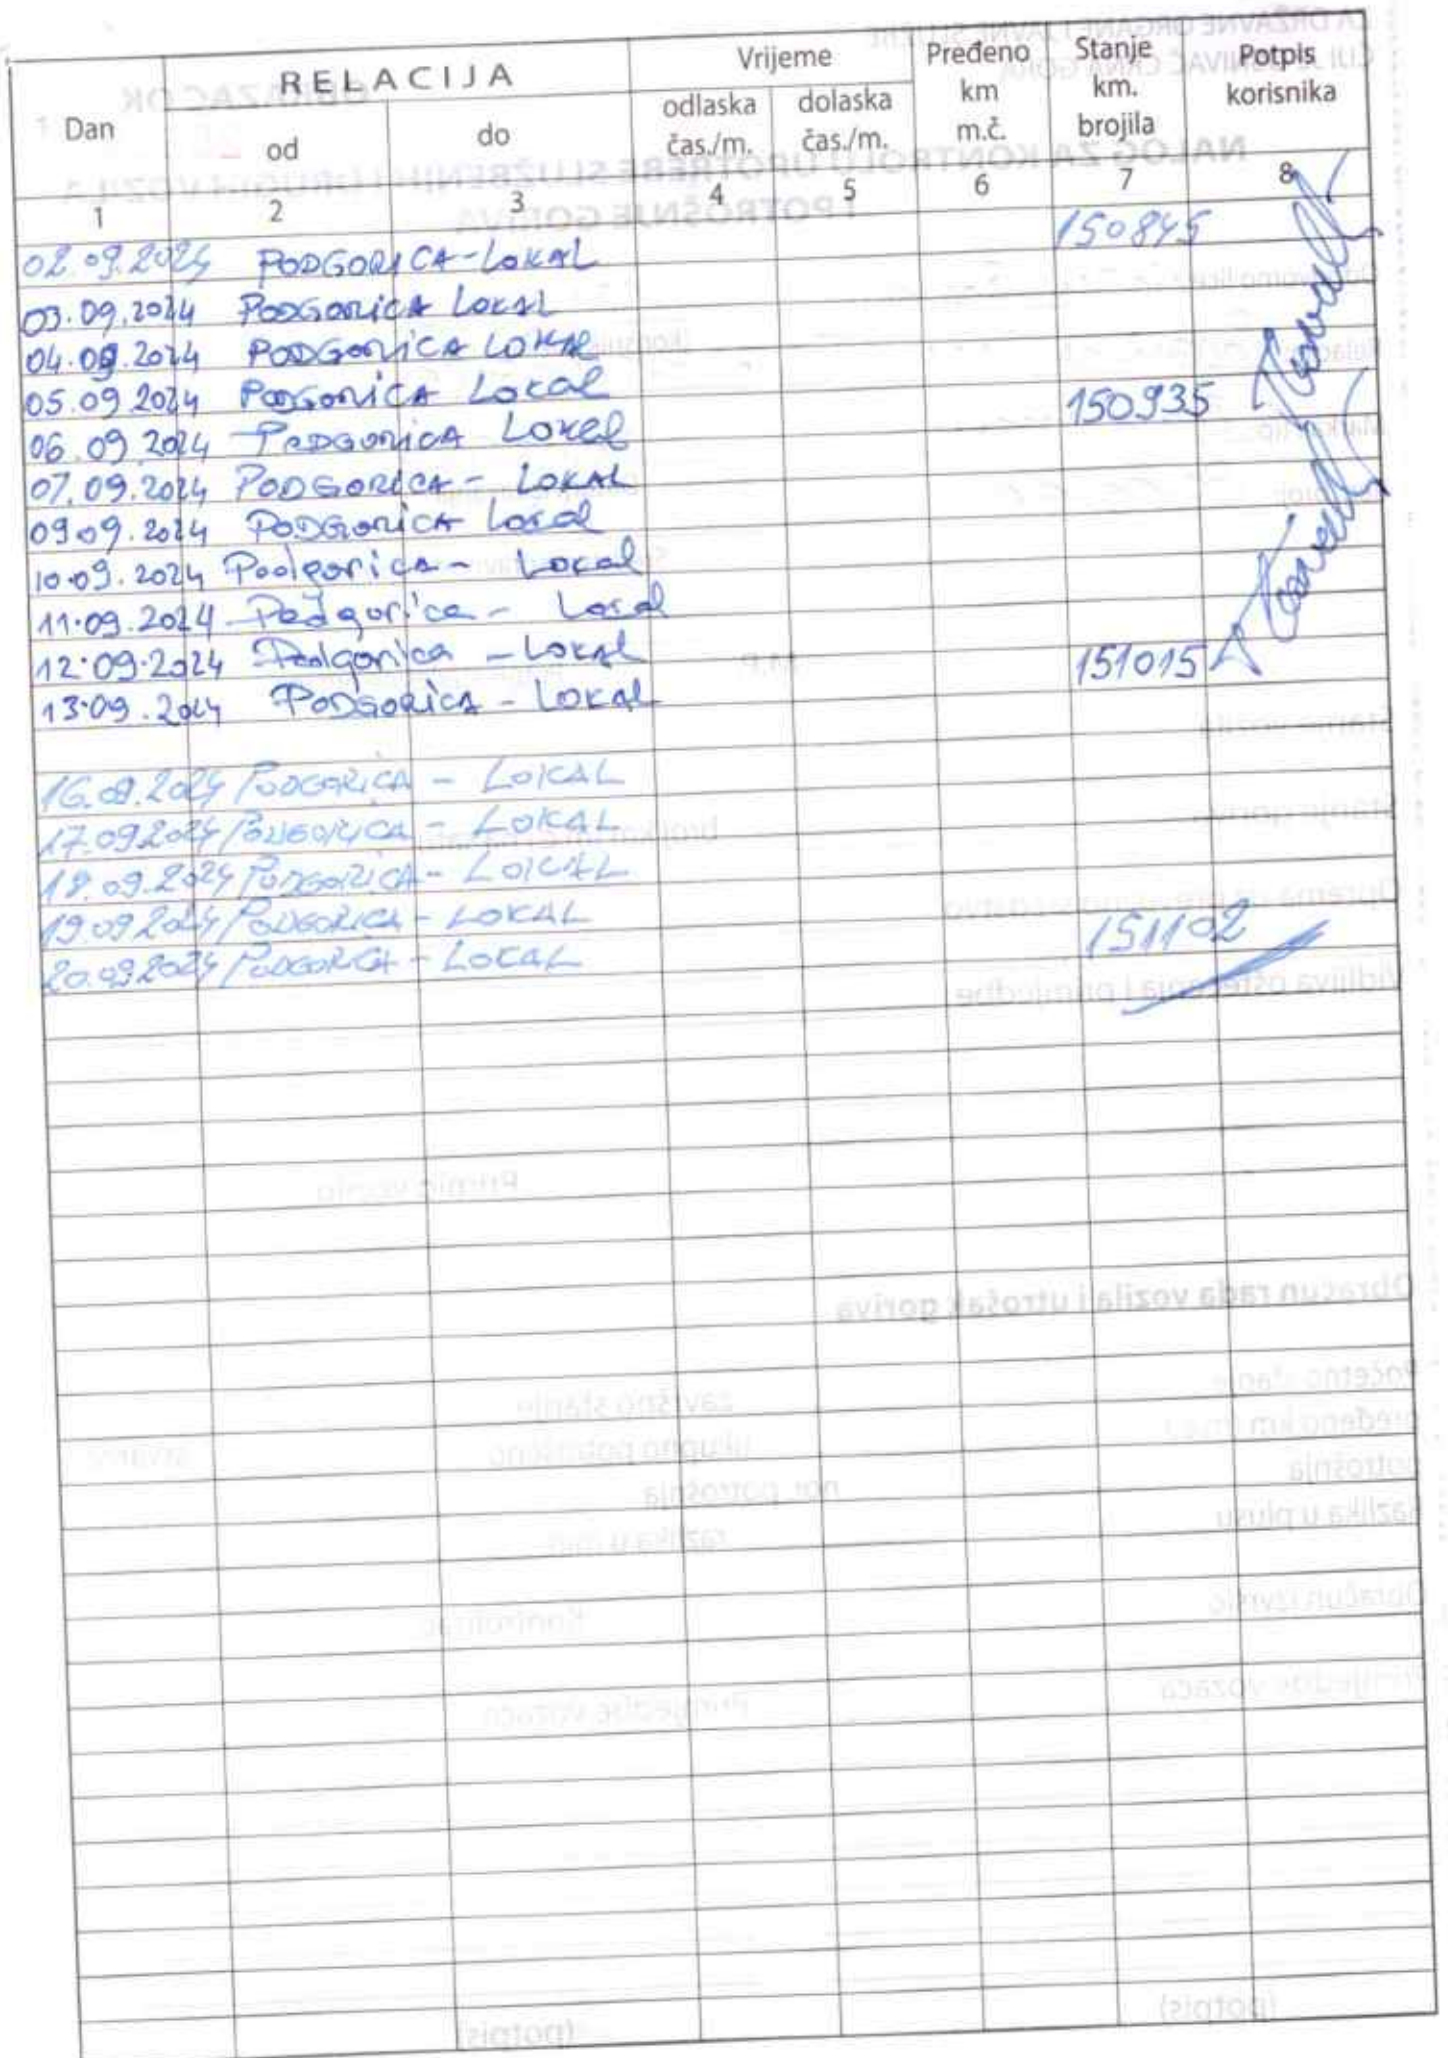 Dan RELACIJA Vrijeme Pređeno km m.č. Stanje km. brojila Potpis korisnika
od do odlaska čas./m. dolaska čas./m.
1 2 3 4 5 6 7 8
02.09.2024 PODGORICA-LOKAL 150845
03.09.2024 PODGORICA LOKAL
04.09.2024 PODGORICA LOKAL
05.09.2024 PODGORICA LOKAL 150935
06.09.2024 PODGORICA LOKAL
07.09.2024 PODGORICA - LOKAL
09.09.2024 PODGORICA Lokal
10.09.2024 Podgorica - Lokal
11.09.2024 Podgorica - Lokal
12.09.2024 Podgorica - Lokal 151015
13.09.2024 PODGORICA - LOKAL
16.09.2024 PODGORICA - LOKAL
17.09.2024 PODGORICA - LOKAL
18.09.2024 PODGORICA - LOKAL
19.09.2024 PODGORICA - LOKAL 151102
20.09.2024 PODGORICA - LOKAL